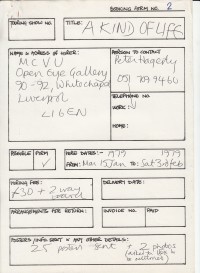 BOOKING FORM NO. 2
TOURING SHOW NO.
TITLE:
A KIND OF LIFE
NAME & ADDRESS OF HIRER:
MCVU
Open Eye Gallery
90-92, Whitechapel
Liverpool
L1 6EN
PERSON TO CONTACT
Peter Hagerty
051 709 9460
TELEPHONE NO.
WORK:
HOME:
FIRM
HIRE DATES:-
1979
1979
FROM: Mon 15 Jan TO: Sat 3rd Feb
HIRING FEE:
£30 + 2 way
DELIVERY DATE:
ARRANGEMENTS FOR RETURN:
INVOICE NO.
PAID
POSTERS/INFO SENT & ANY OTHER DETAILS:
25 posters sent + 2 photos